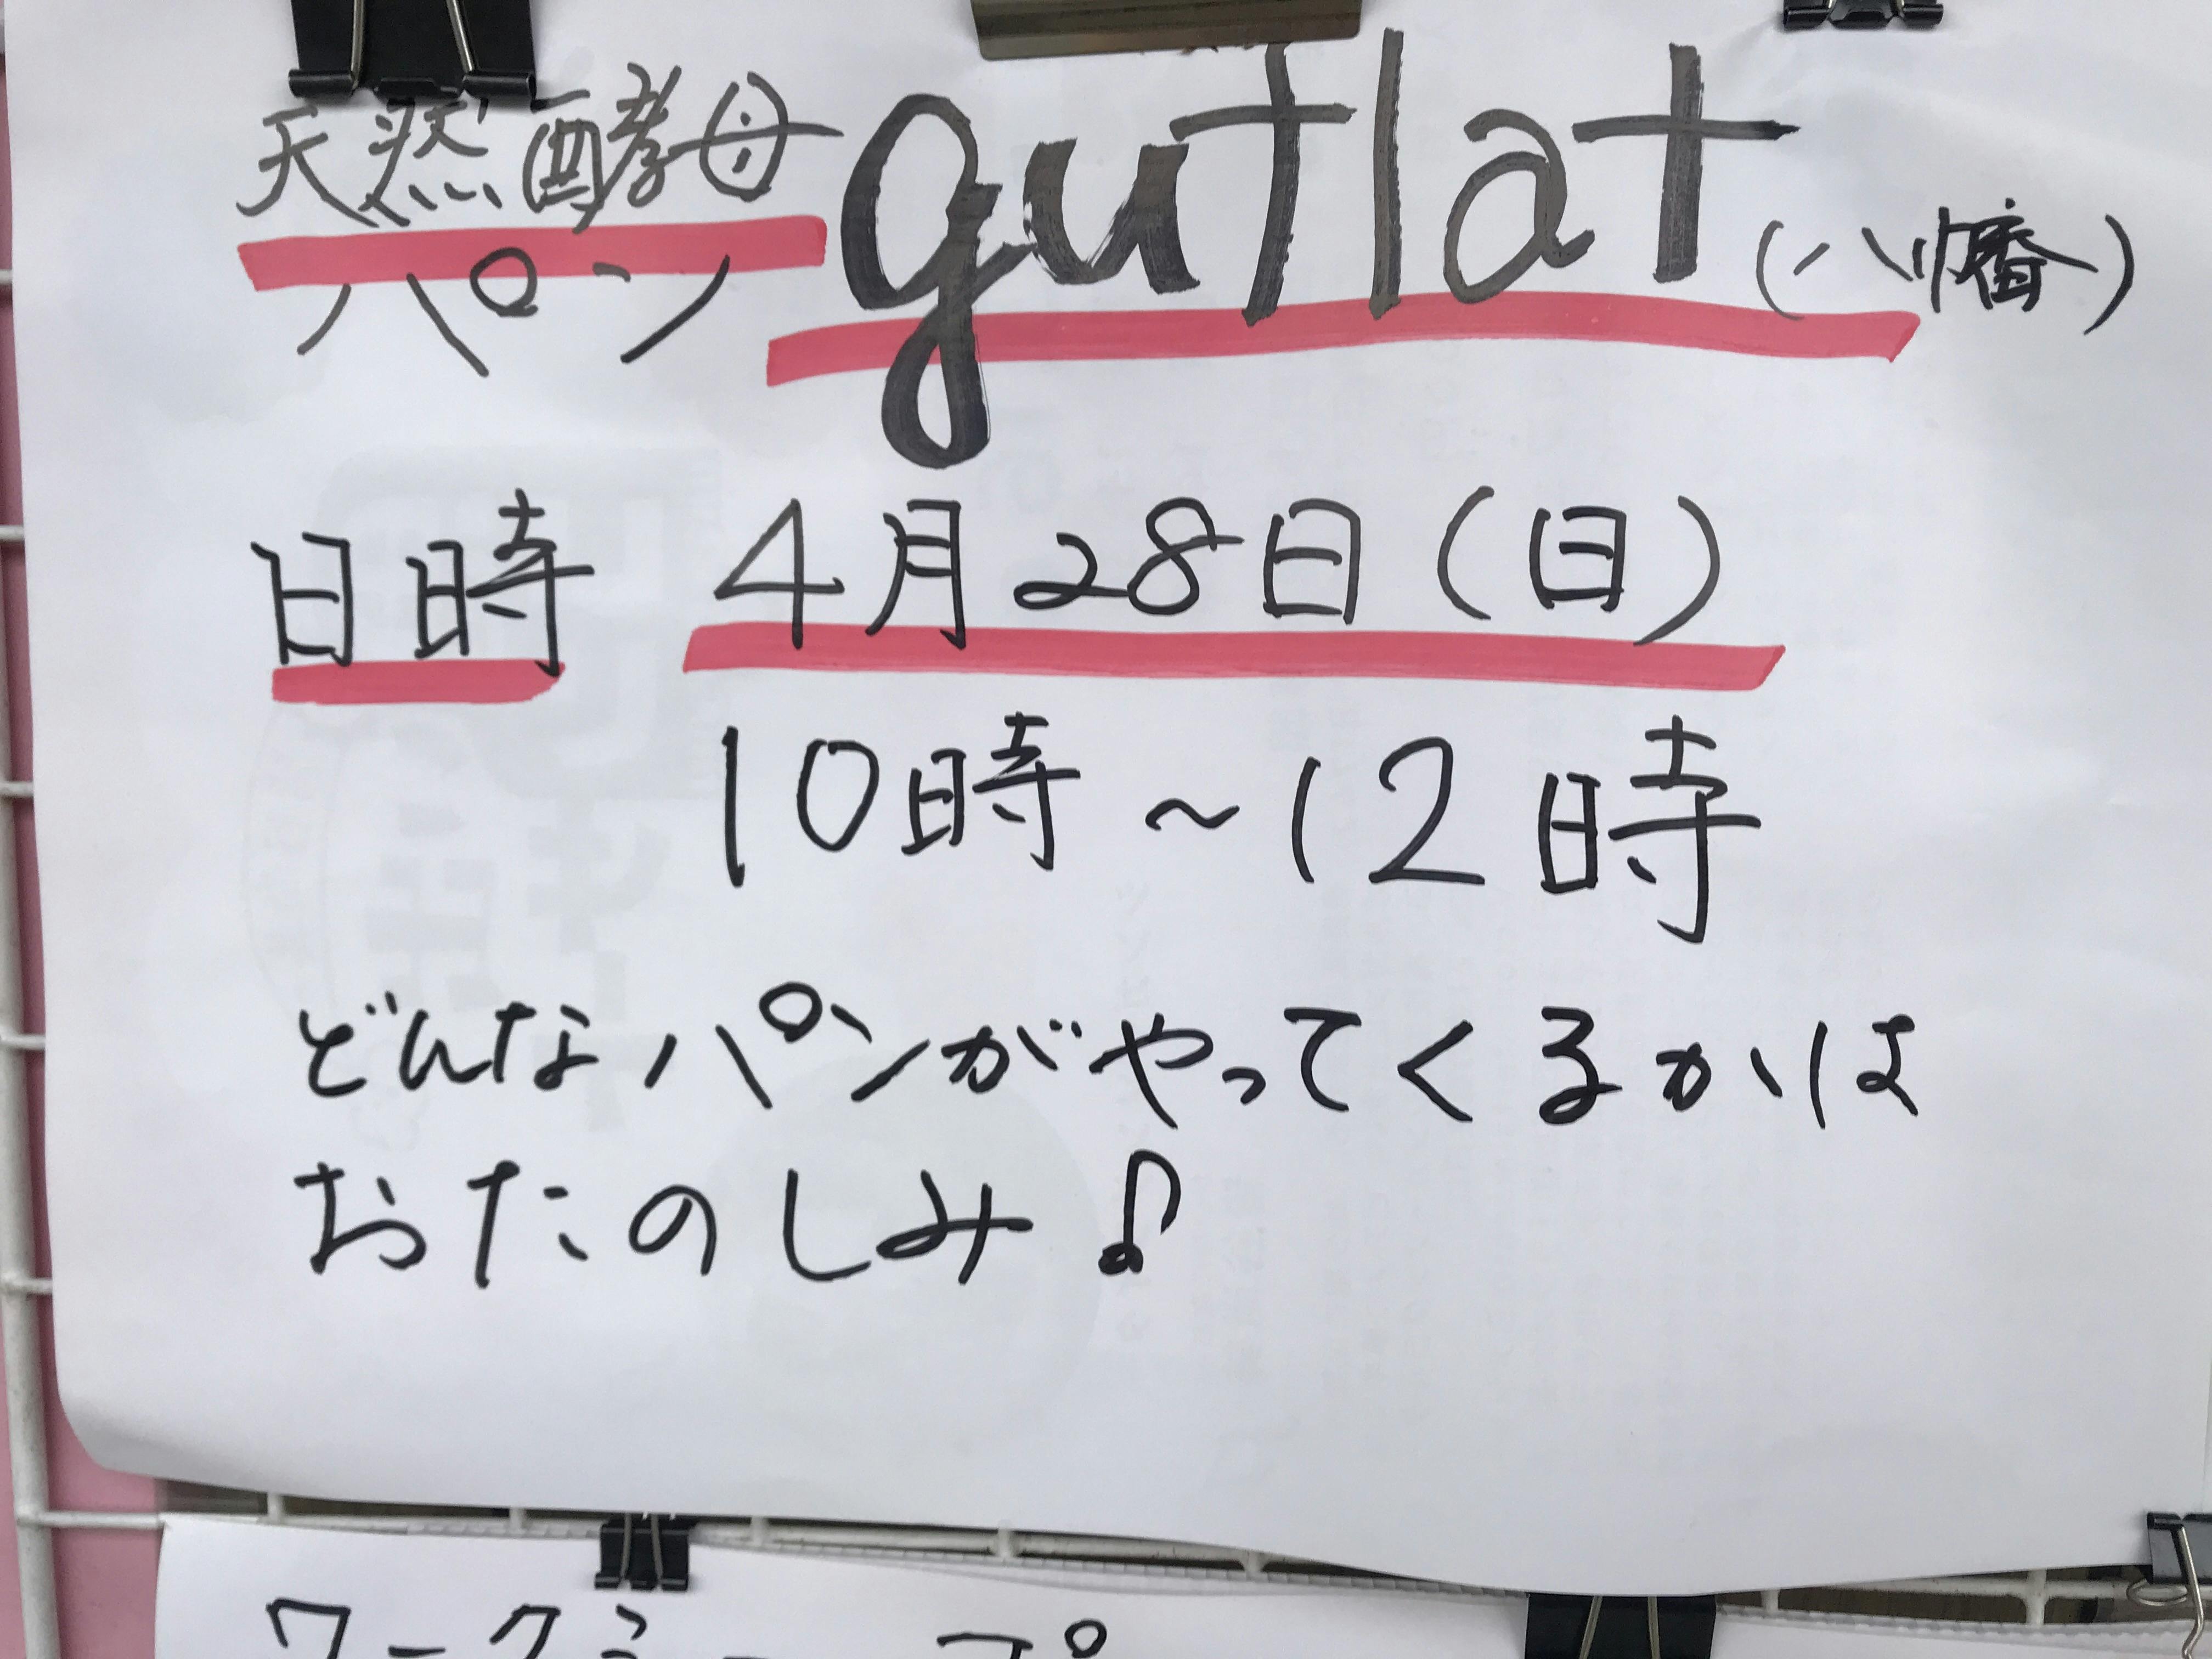 天然酵母
パン guflat (八幡)
日時 4月28日(日)
10時~12時
どんなパンがやってくるかは
おたのしみ♪